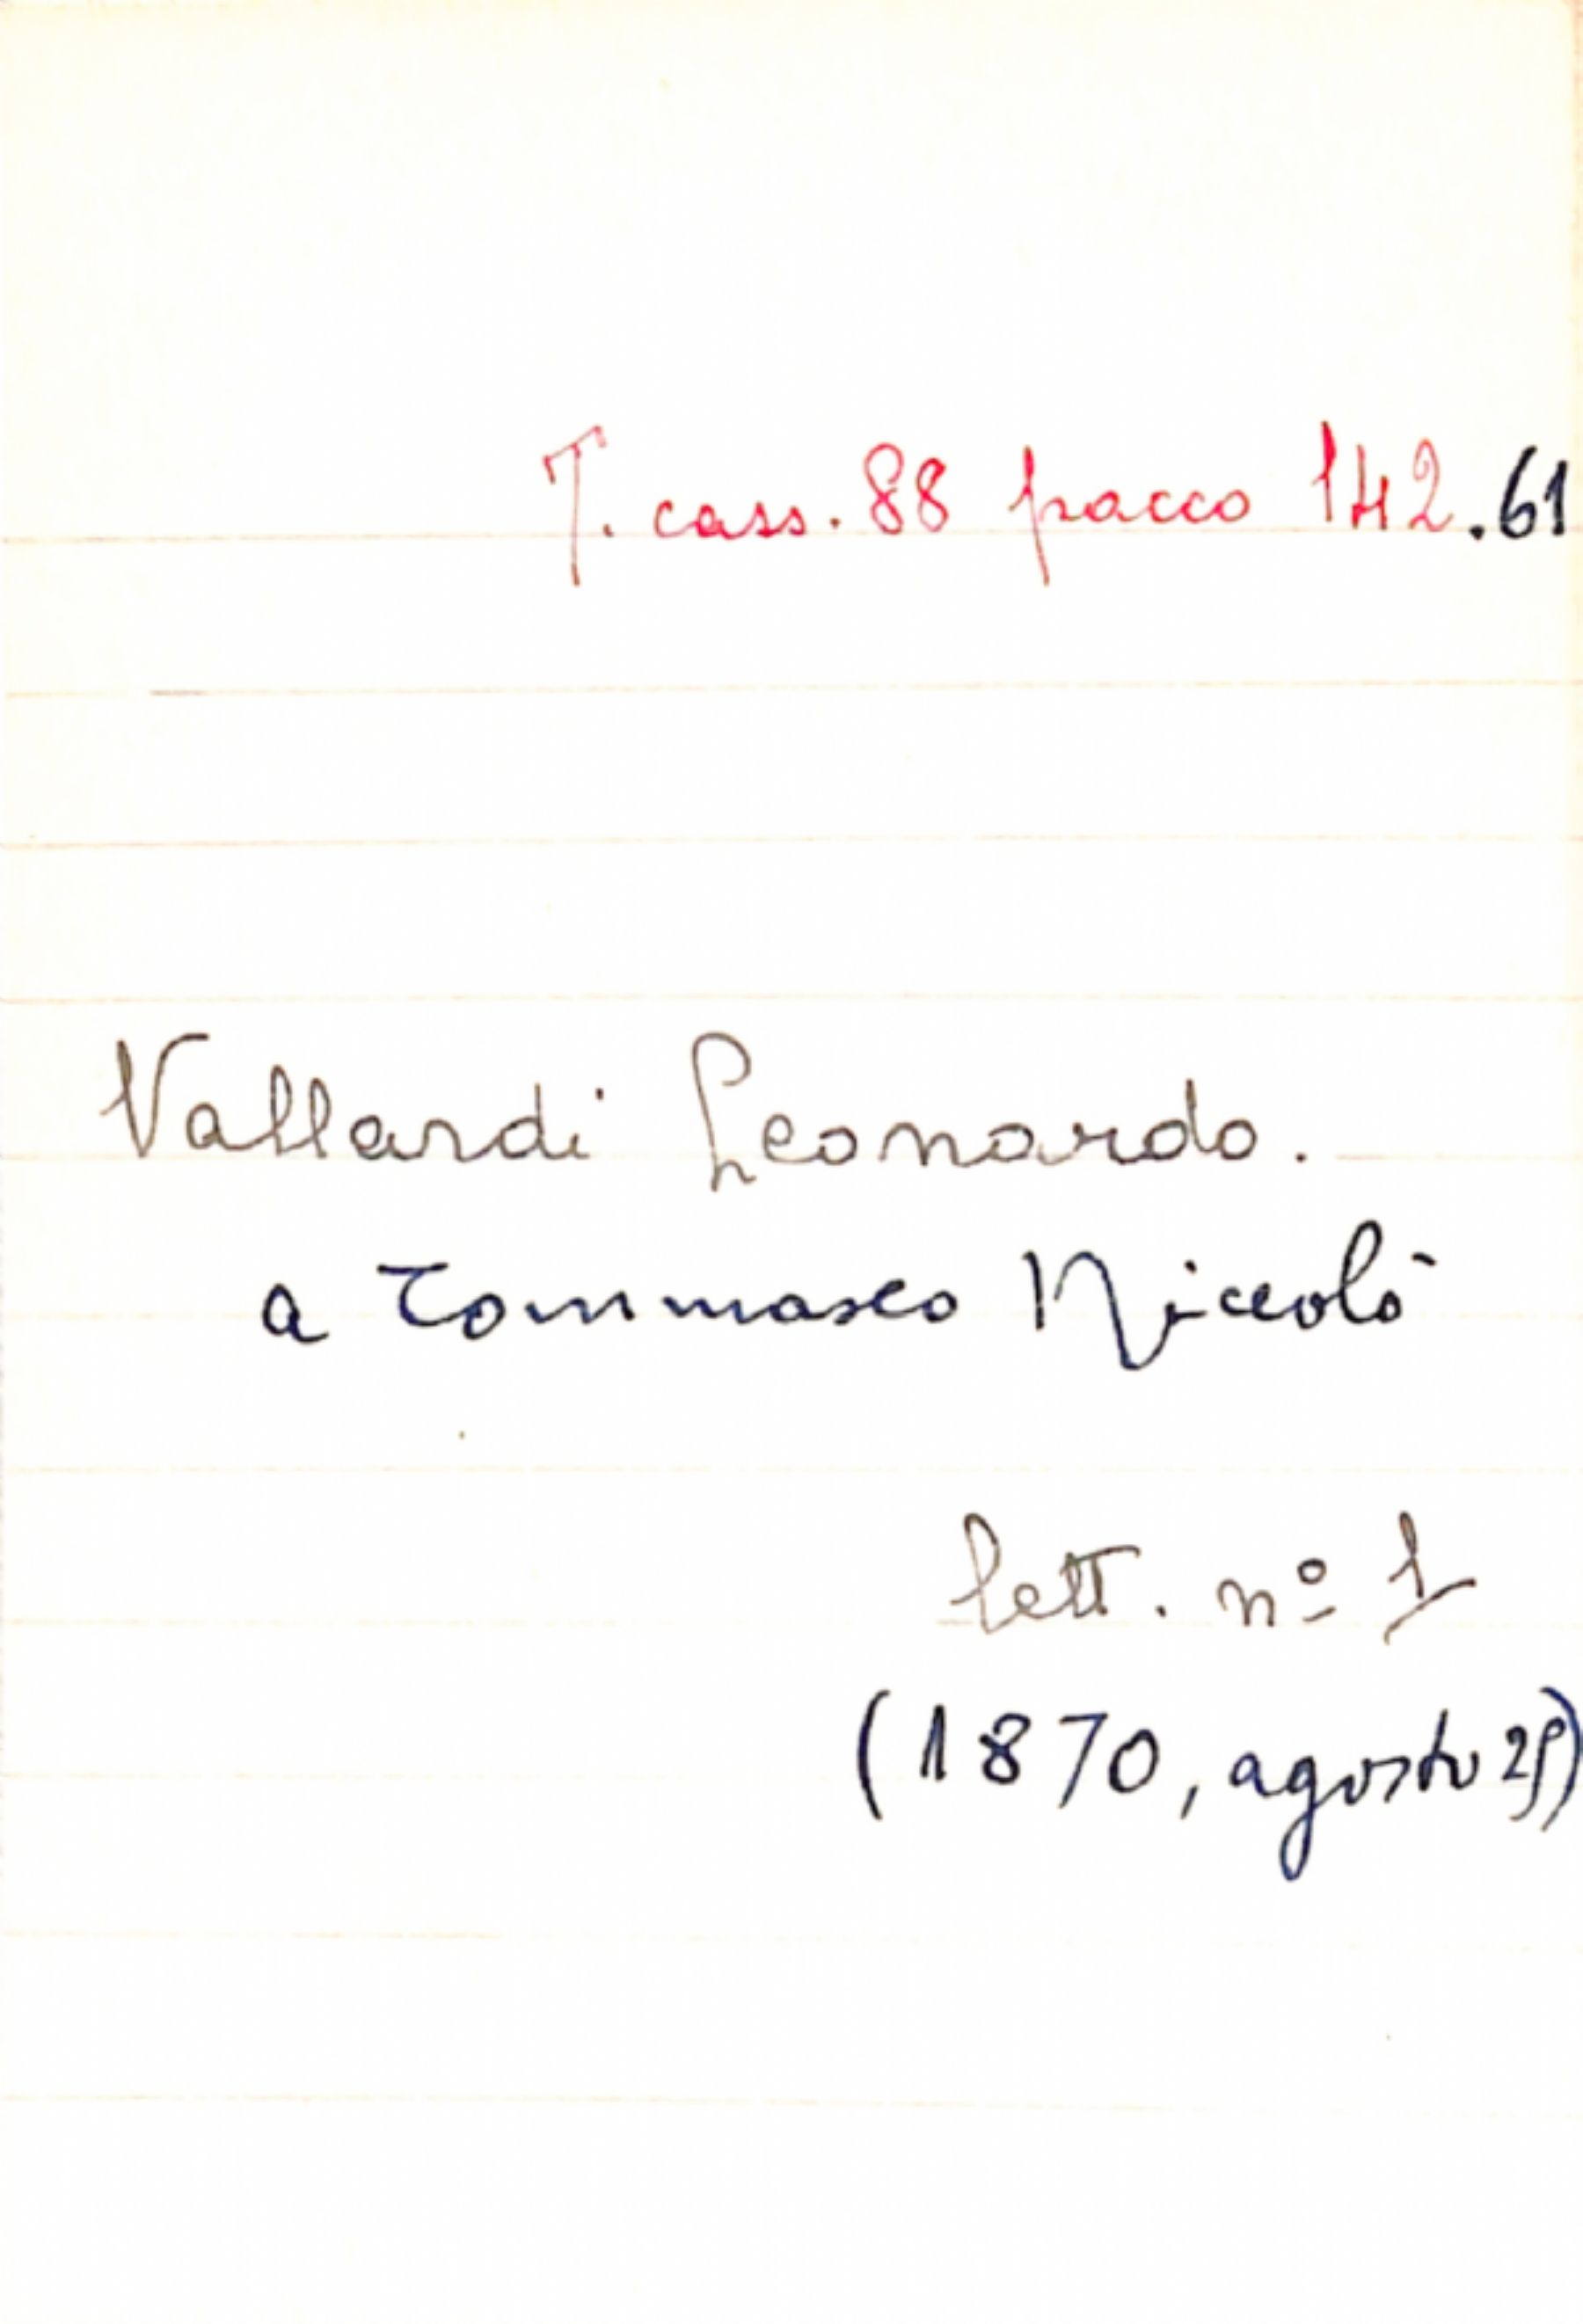 T. cass. 88 pacco 142.61
Vallardi Leonardo.
a Tommaseo Niccolò
lett. nº 1
(1870, agosto 29)